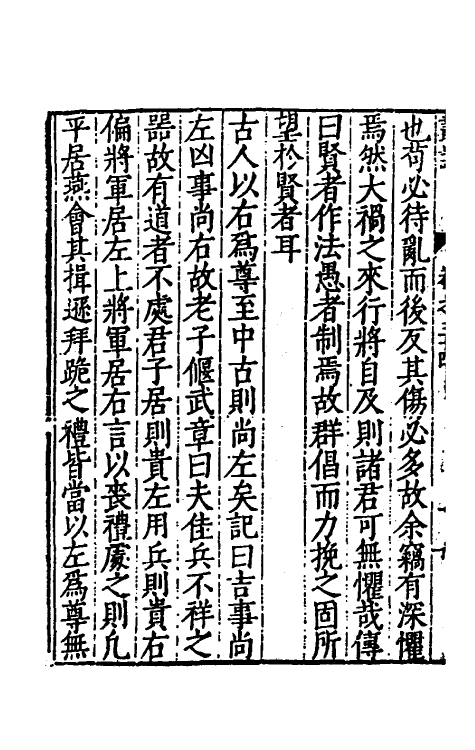 也苟必待亂而後反其傷必多故余竊有深懼
焉然大禍之來行將自及則諸君可無懼哉傳
曰賢者作法愚者制焉故群倡而力挽之固所
望於賢者耳
古人以右爲尊至中古則尚左矣記曰吉事尚
左凶事尚右故老子偃武章曰夫佳兵不祥之
器故有道者不處君子居則貴左用兵則貴右
偏將軍居左上將軍居右言以喪禮處之則凢
平居燕會其揖遜拜跪之禮皆當以左爲尊無